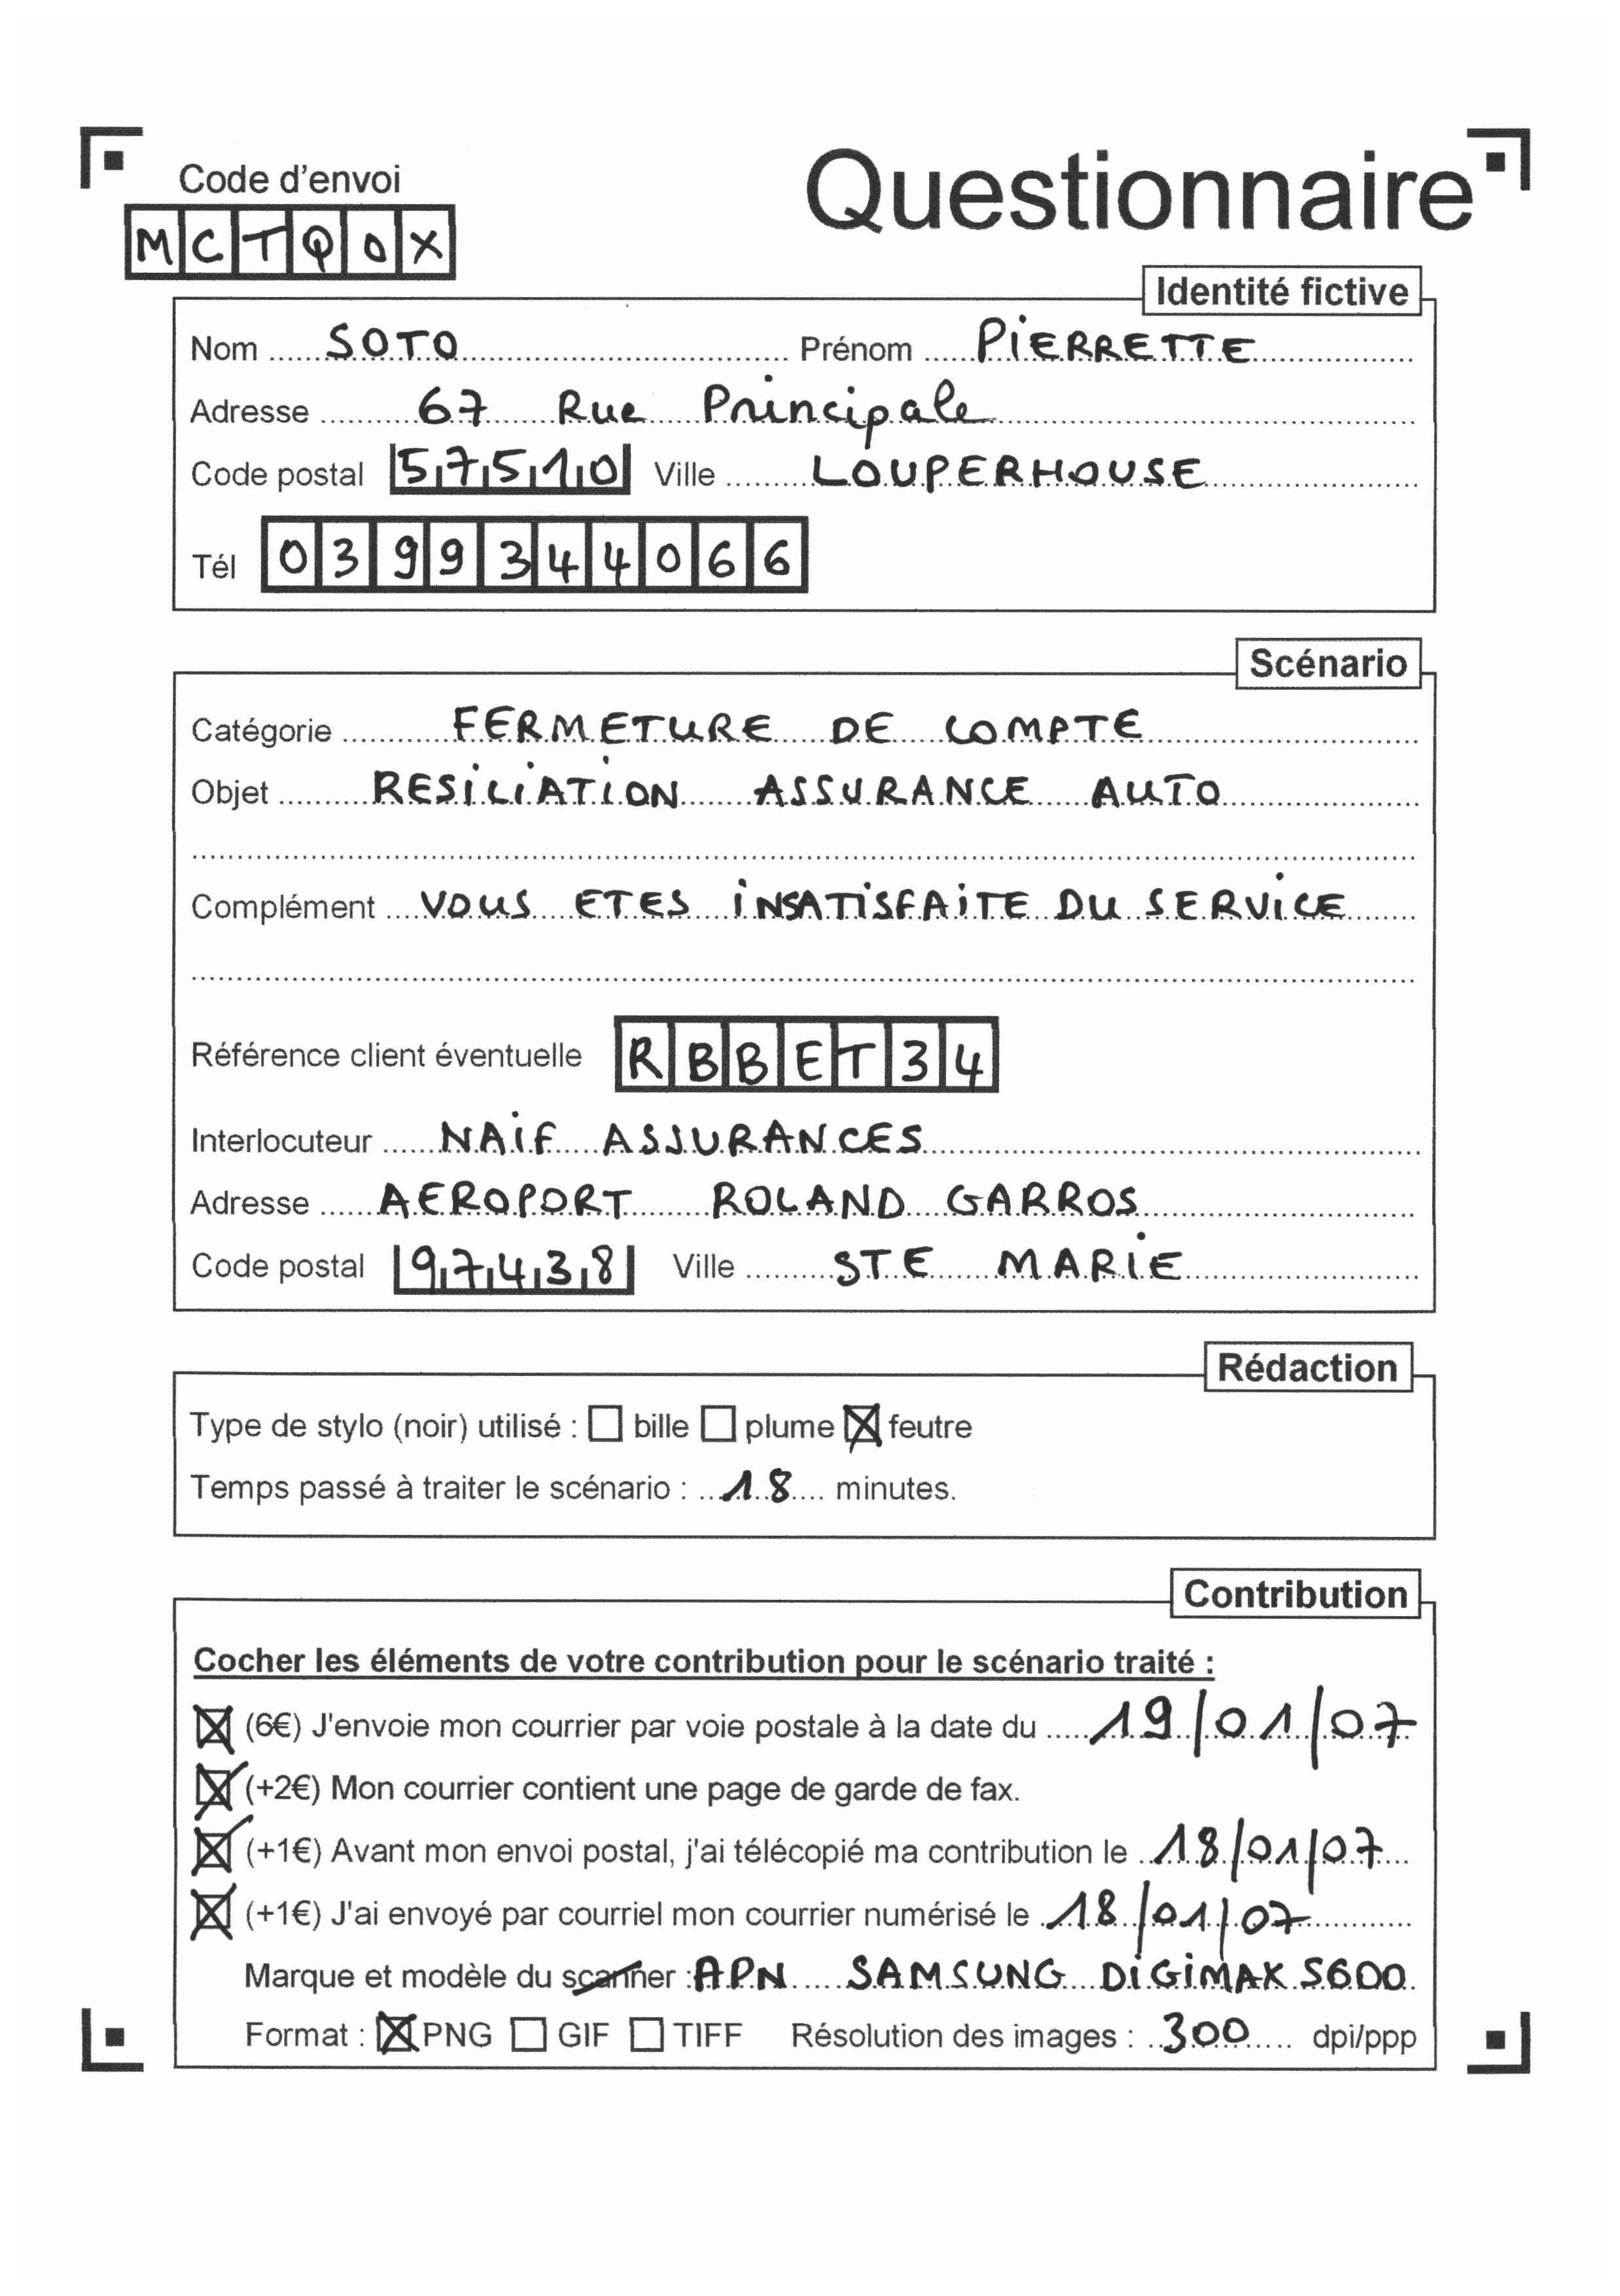 Code d'envoi
Questionnaire
MCTQOX
Identité fictive
Nom SOTO Prénom PiERRETTE
Adresse 67 Rue Principale
Code postal 57510 Ville LOUPERHOUSE
Tél 0399344066
Scénario
Catégorie FERMETURE DE COMPTE
Objet RESiLiATiON ASSURANCE AUTO
Complément VOUS ETES iNSATiSFAiTE DU SERViCE
Référence client éventuelle RBBET34
Interlocuteur NAiF ASSURANCES
Adresse AEROPORT ROLAND GARROS
Code postal 97438 Ville STE MARiE
Rédaction
Type de stylo (noir) utilisé : bille plume feutre
Temps passé à traiter le scénario : 18 minutes.
Contribution
Cocher les éléments de votre contribution pour le scénario traité :
(6€) J'envoie mon courrier par voie postale à la date du 19/01/07
(+2€) Mon courrier contient une page de garde de fax.
(+1€) Avant mon envoi postal, j'ai télécopié ma contribution le 18/01/07
(+1€) J'ai envoyé par courriel mon courrier numérisé le 18/01/07
Marque et modèle du scanner : APN SAMSUNG DiGiMAX S600
Format : PNG GIF TIFF Résolution des images : 300 dpi/ppp